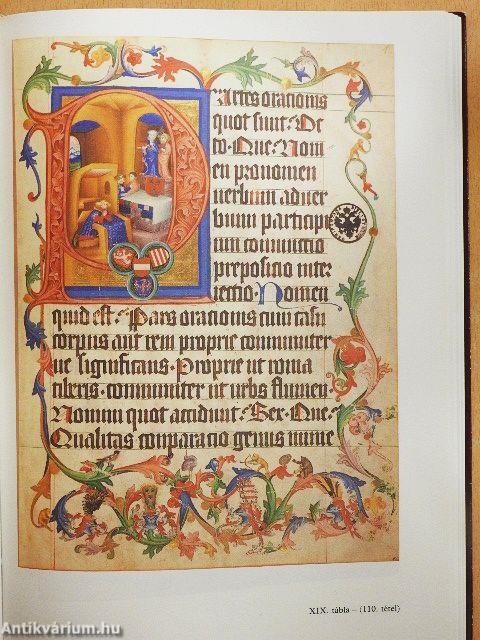 Partes orationis
quot sunt · Oc
to · Que · Nom
en pronomen
uerbum aduer
bium particip
ium coniunctio
prepositio inter
iectio · Nomen
quid est · Pars orationis cum casu
corpus aut rem proprie communiter
ue significans · Proprie ut roma
communiter ut urbs flumen
Nomini quot accidunt · Sex · Que
Qualitas conparacio genus nume
XIX. tábla – (110. tétel)
Antikvárium.hu